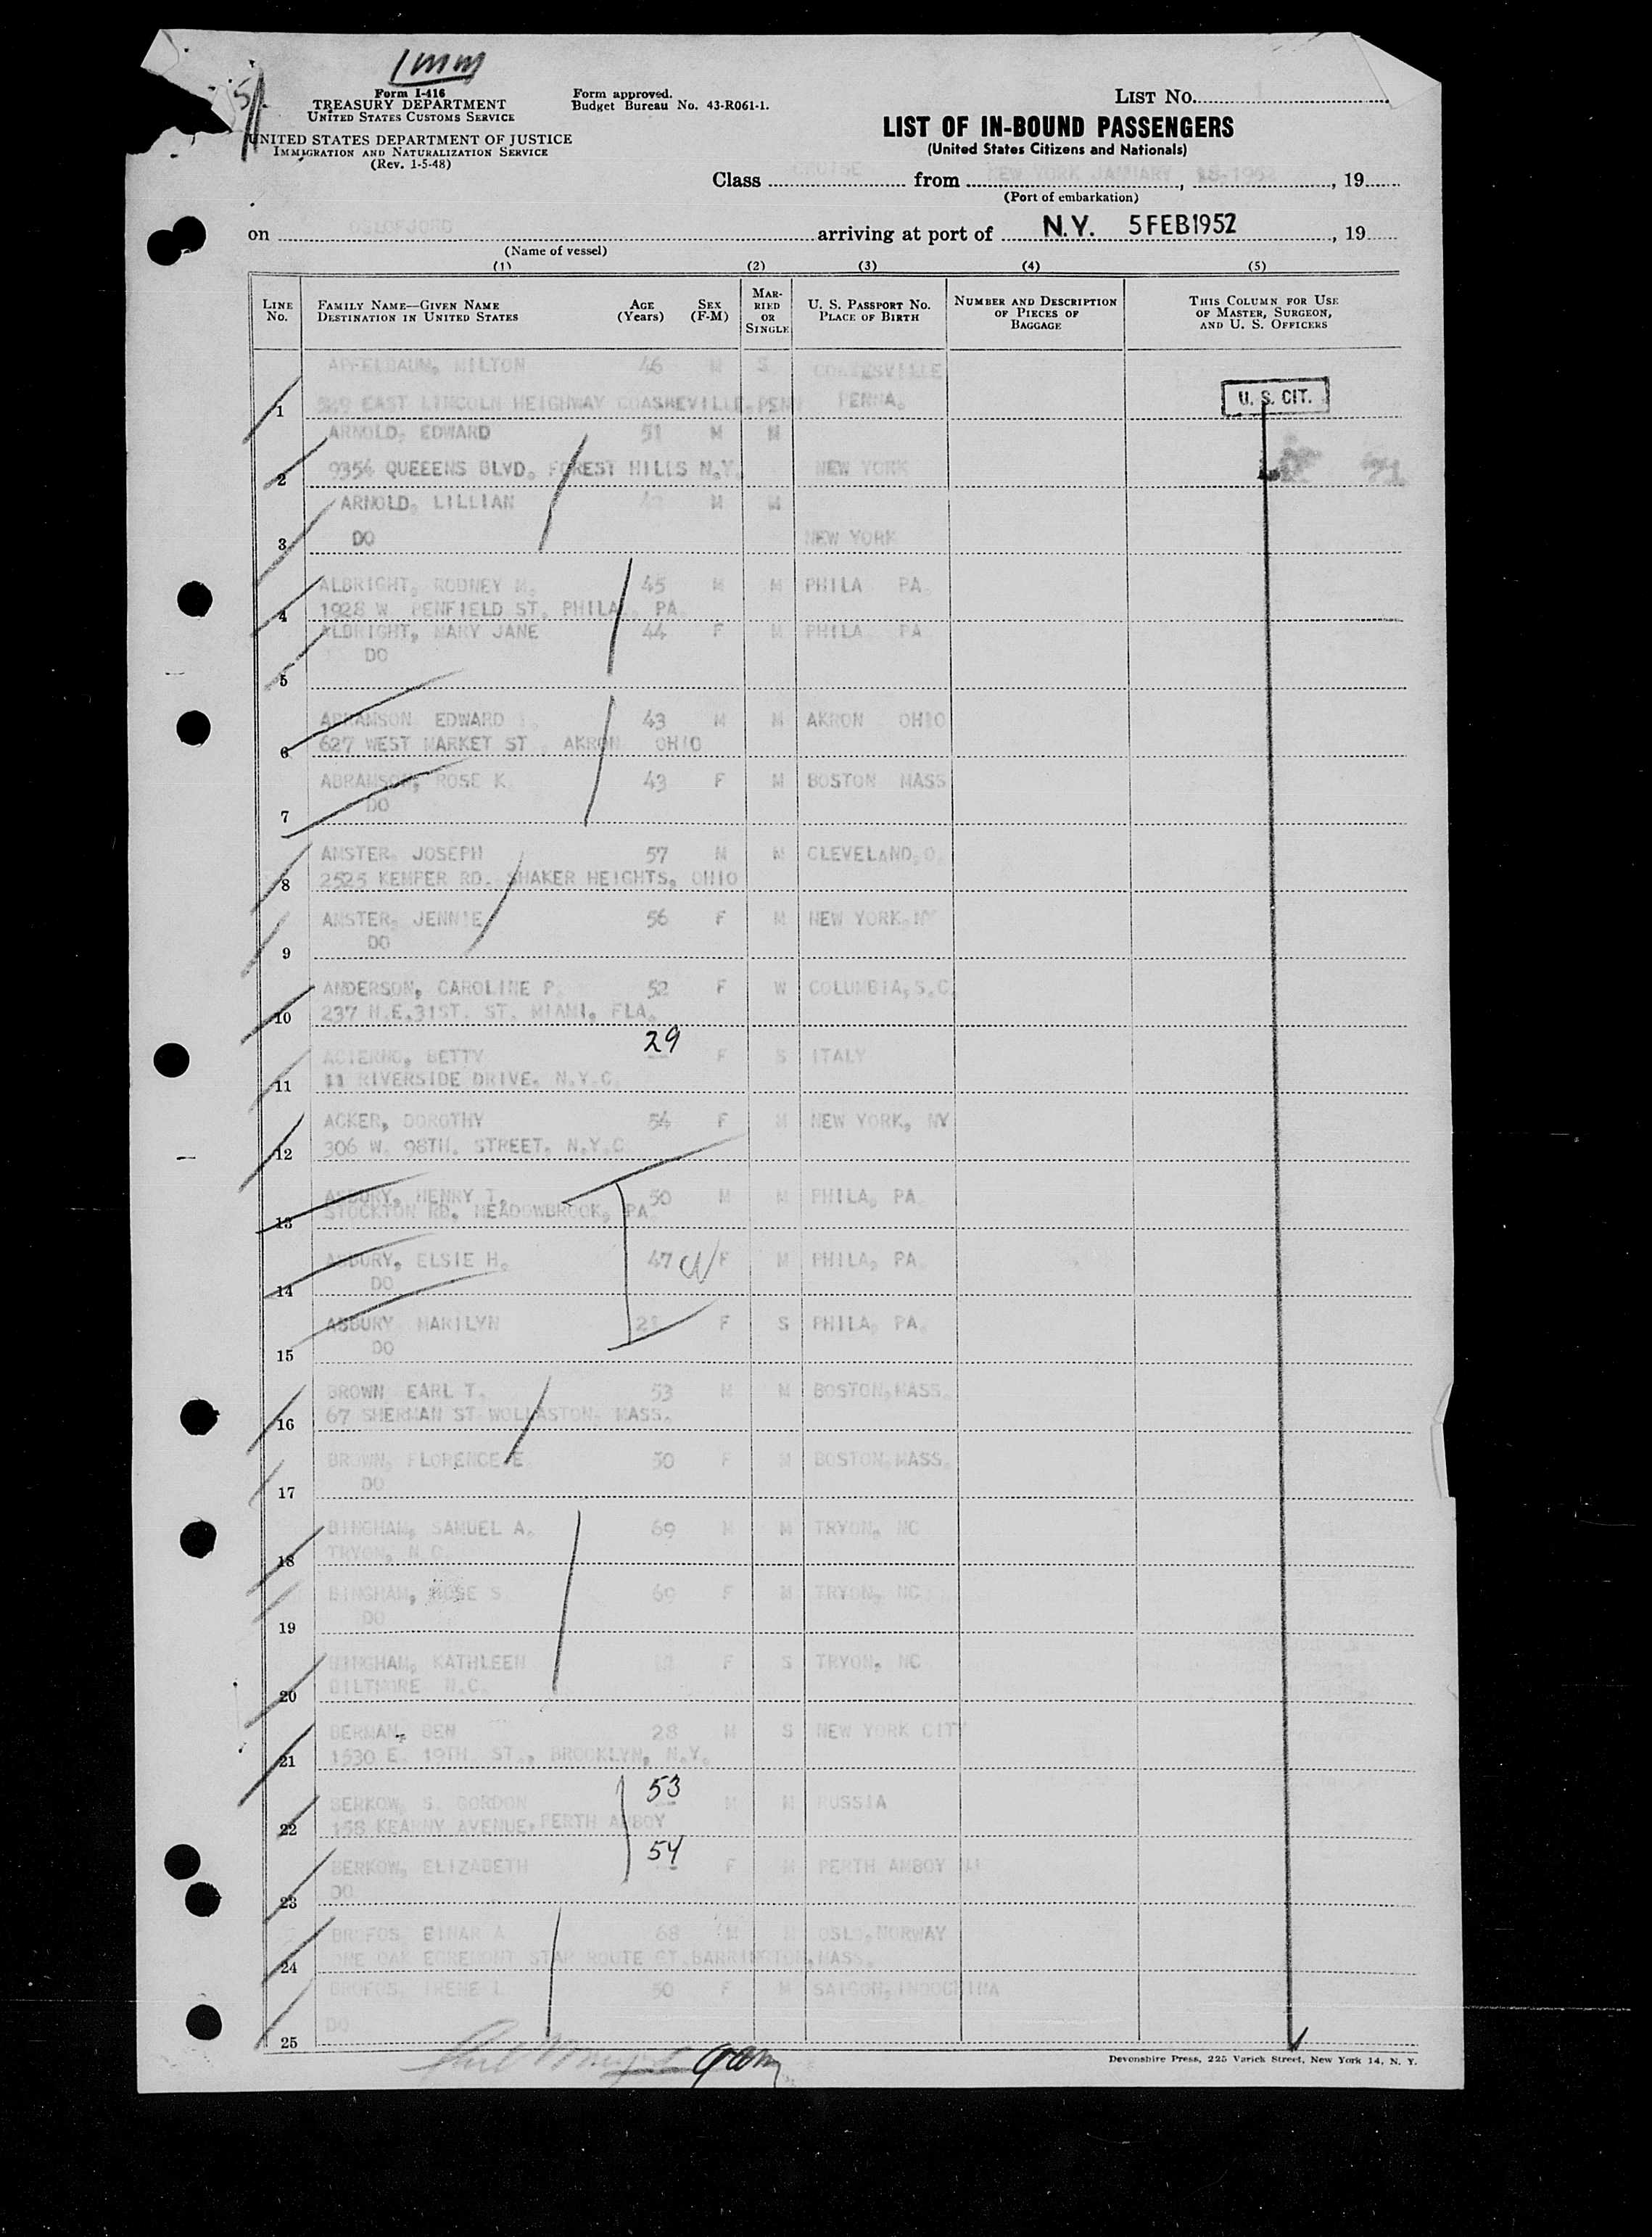 Imm
5
Form I-416
TREASURY DEPARTMENT
UNITED STATES CUSTOMS SERVICE
UNITED STATES DEPARTMENT OF JUSTICE
IMMIGRATION AND NATURALIZATION SERVICE
(Rev. 1-5-48)
Form approved.
Budget Bureau No. 43-R061-1.
LIST NO. 1
LIST OF IN-BOUND PASSENGERS
(United States Citizens and Nationals)
Class CRUISE from NEW YORK JANUARY, 18-1952, 19
(Port of embarkation)
on OSLOFJORD arriving at port of N.Y. 5 FEB 1952, 19
(Name of vessel)
(1) (2) (3) (4) (5)
LINE NO. FAMILY NAME—GIVEN NAME DESTINATION IN UNITED STATES AGE (Years) SEX (F-M) MARRIED OR SINGLE U. S. PASSPORT NO. PLACE OF BIRTH NUMBER AND DESCRIPTION OF PIECES OF BAGGAGE THIS COLUMN FOR USE OF MASTER, SURGEON, AND U. S. OFFICERS
APFELBAUM, MILTON 46 M S COATESVILLE
1 EAST LINCOLN HEIGHWAY COASHEVILLE, PENN PENNA. U. S. CIT.
ARNOLD, EDWARD 51 M M
2 9354 QUEEENS BLVD. FOREST HILLS N.Y. NEW YORK
ARNOLD, LILLIAN M M
3 DO NEW YORK
ALBRIGHT, RODNEY M. 45 M M PHILA PA.
4 1928 W. PENFIELD ST. PHILA., PA.
ALBRIGHT, MARY JANE 44 F M PHILA PA
5 DO
ABRAMSON EDWARD 43 M M AKRON OHIO
6 627 WEST MARKET ST., AKRON OHIO
ABRAMSON, ROSE K 43 F M BOSTON MASS
7 DO
AMSTER, JOSEPH 57 M M CLEVELAND, O.
8 2525 KEMPER RD. SHAKER HEIGHTS, OHIO
AMSTER, JENNIE 56 F M NEW YORK, NY
9 DO
ANDERSON, CAROLINE P. 52 F W COLUMBIA, S.C.
10 237 N.E. 31ST. ST. MIAMI, FLA.
ACIERNO, BETTY 29 F S ITALY
11 11 RIVERSIDE DRIVE. N.Y.C.
ACKER, DOROTHY 54 F M NEW YORK, NY
12 306 W. 98TH. STREET. N.Y.C
ASBURY, HENRY T. 50 M M PHILA, PA.
13 STOCKTON RD. MEADOWBROOK, PA.
ASBURY, ELSIE H. 47 F M PHILA, PA.
14 DO
ASBURY MARILYN F S PHILA, PA.
15 DO
BROWN EARL T. 53 M M BOSTON, MASS.
16 67 SHERMAN ST WOLLASTON, MASS.
BROWN, FLORENCE E. 50 F M BOSTON, MASS.
17 DO
BINGHAM, SAMUEL A. 69 M M TRYON, NC
18 TRYON, N.C.
BINGHAM, ROSE S 69 F M TRYON, NC
19 DO
BINGHAM, KATHLEEN F S TRYON, NC
20 BILTMORE N.C.
BERMAN, BEN 28 M S NEW YORK CITY
21 1530 E. 19TH. ST., BROOKLYN, N.Y.
BERKOW, S. GORDON 53 M M RUSSIA
22 158 KEARNY AVENUE, PERTH AMBOY
BERKOW, ELIZABETH 54 F M PERTH AMBOY NJ
23 DO
BROFOS, EINAR A 68 M M OSLO, NORWAY
24 ONE OAK EGREMONT STAR ROUTE GT. BARRINGTON, MASS.
BROFOS, IRENE L 50 F M SAIGON, INDOCHINA
25 DO
Devonshire Press, 225 Varick Street, New York 14, N. Y.